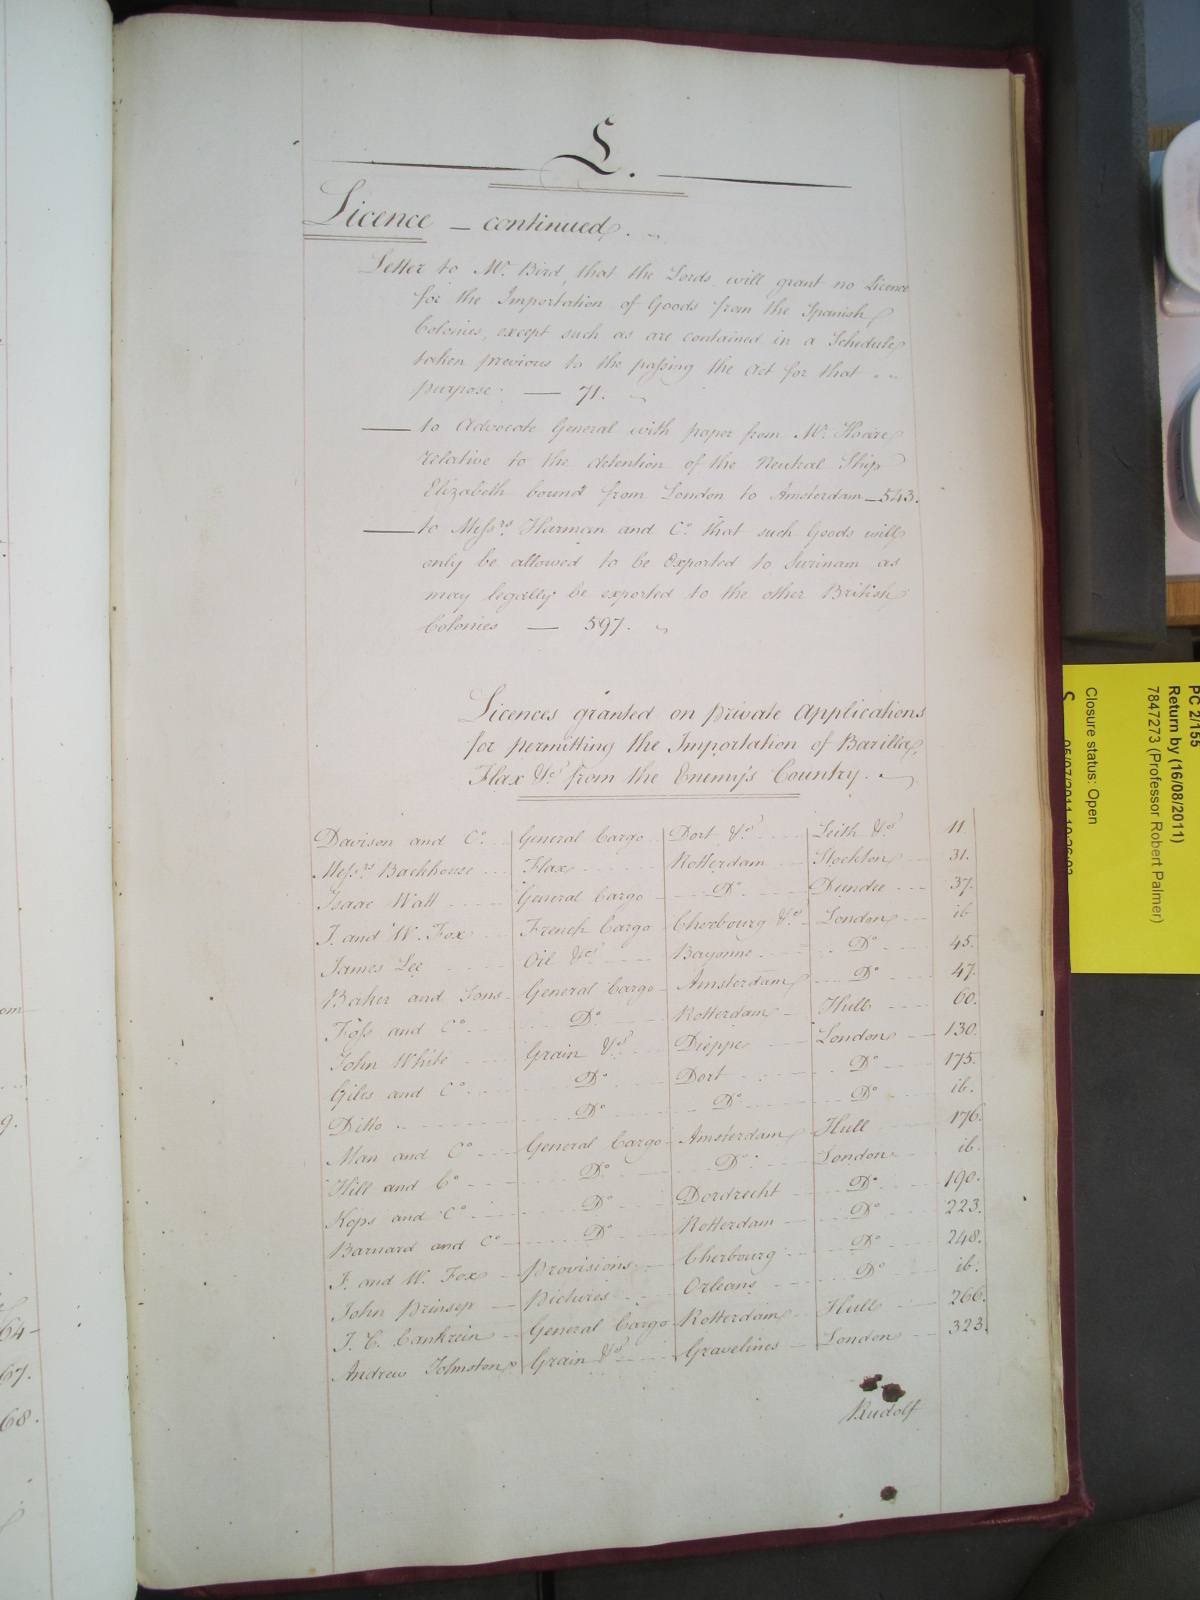 L.
Licence – continued.
Letter to Mr. Bird, that the Lords will grant no Licence
for the Importation of Goods from the Spanish
Colonies, except such as are contained in a Schedule
taken previous to the passing the Act for that
purpose. — 71.
— to Advocate General with paper from Mr. Hoare
relative to the detention of the Neutral Ship
Elizabeth bound from London to Amsterdam — 543.
— to Messrs. Harman and Co. that such Goods will
only be allowed to be Exported to Surinam as
may legally be exported to the other British
Colonies — 597.
Licences granted on private Applications
for permitting the Importation of Barilla,
Flax &c. from the Enemy's Country.
Davison and Co. General Cargo Dort &c. Leith &c. 11.
Messrs. Backhouse Flax Rotterdam Stockton 31.
Isaac Watt General Cargo Do. Dundee 37.
J. and W. Fox French Cargo Cherbourg &c. London ib
James Lee Oil &c. Bayonne Do. 45.
Baker and Sons General Cargo Amsterdam Do. 47.
Foss and Co. Do. Rotterdam Hull 60.
John White Grain &c. Dieppe London 130.
Giles and Co. Do. Dort Do. 175.
Ditto Do. Do. Do. ib.
Man and Co. General Cargo Amsterdam Hull 176.
Hill and Co. Do. Do. London ib.
Kops and Co. Do. Dordrecht Do. 190.
Barnard and Co. Do. Rotterdam Do. 223.
J. and W. Fox Provisions Cherbourg Do. 248.
John Prinsep Pictures Orleans Do. ib.
J. C. Cankrein General Cargo Rotterdam Hull 266.
Andrew Johnston Grain &c. Gravelines London 323.
Rudolf
9.
64
67.
68.
PC 2/155
Return by (16/08/2011)
7847273 (Professor Robert Palmer)
Closure status: Open